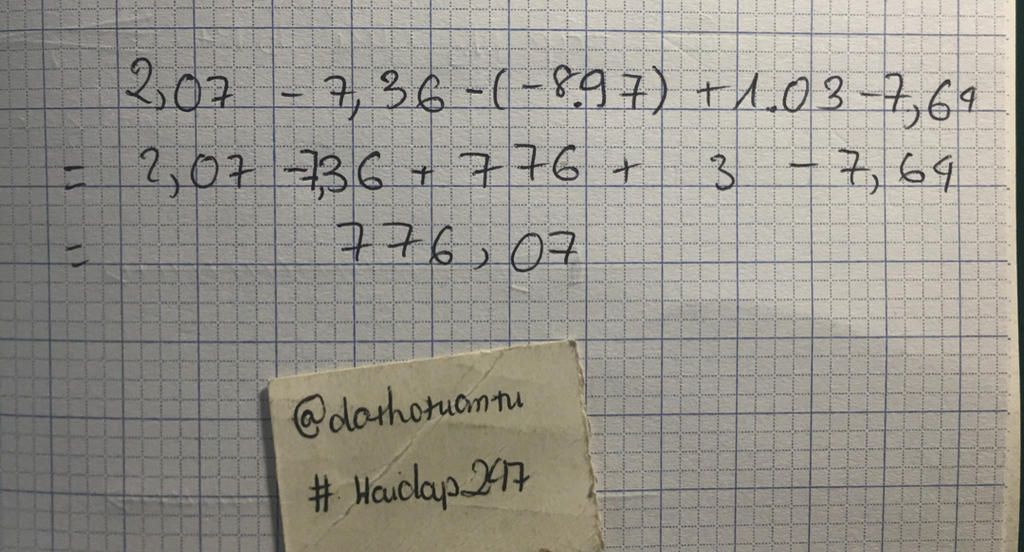 2,07 - 7,36 - (-8.97) + 1.03 - 7,64
= 2,07 - 7,36 + 776 + 3 - 7,64
= 776,07
@dathotuantu
# Hoidap247